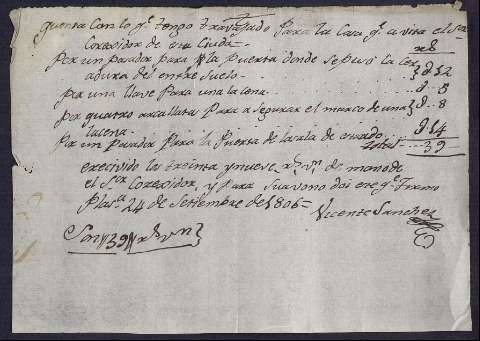 quenta con lo q.e tengo travajado Para la Casa q.e avita el s.or
Corexidor de esta Ciuda
rs
Por un pasador para la puerta donde se puso la cer
adura del entre suelo - - - } d 12
Por una llave Para una lacena - - - d - 8
Por quatro Para a segurar el marco de una } d - 8
lacena
Por un Pasador Para la Puerta de la sala de - - - d 14
total - - - 39
e recivido los treinta y nueve rs vn de mano de
el s.or Corexidor, y Para su avono doi este q.e Firmo
Plas.a 24 de Setiembre de 1806 =
Vicente Sanchez
Son 39 rs vn }